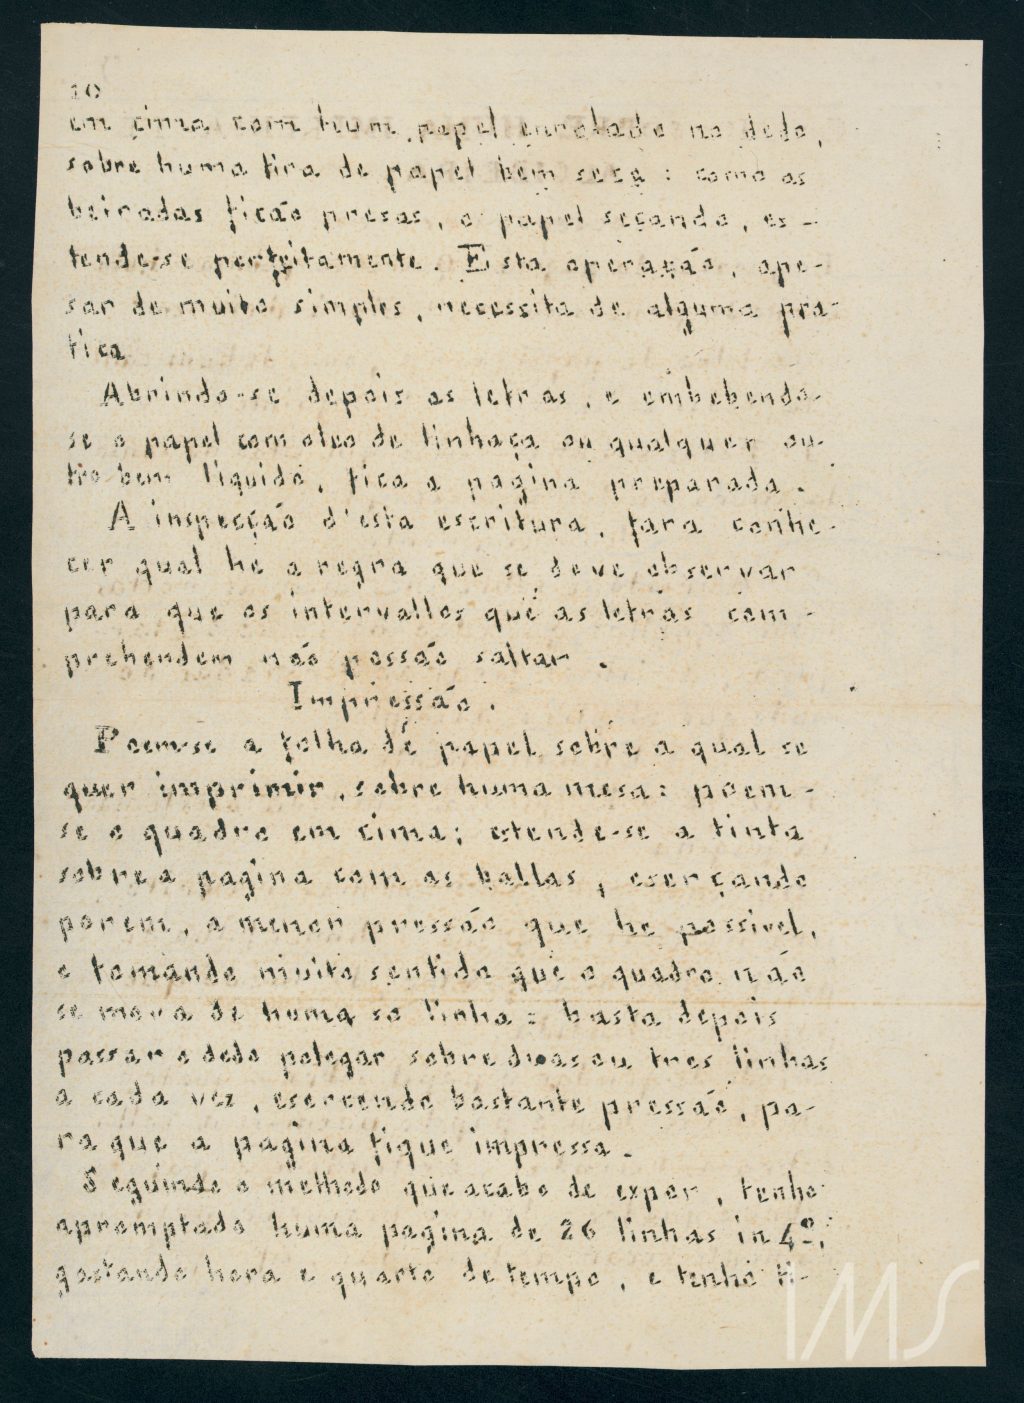 10
em çima com hum papel enrolado no dedo,
sobre huma tira de papel bem seca : como as
beiradas ficão presas, o papel seçando, es-
tende-se perfeitamente. Esta operação, ape-
sar de muito simples, necessita de alguma pra-
tica
Abrindo-se depois as letras, e embebendo-
se o papel com oleo de linhaça ou qualquer ou-
tro bem liquido, fica a pagina preparada.
A inspecção d'esta escritura, fara conhe-
cer qual he a regra que se deve observar
para que os intervallos que as letras com-
prehendem não possão saltar.
Impressão.
Poem-se a folha de papel sobre a qual se
quer imprimir, sobre huma mesa: poem-
se o quadro em cima; estende-se a tinta
sobre a pagina com as ballas, eserçando
porem, a menor pressão que he possivel,
e tomando muito sentido que o quadro não
se mova de huma so linha: basta depois
passar o dedo polegar sobre duas ou tres linhas
a cada vez, esercendo bastante pressão, pa-
ra que a pagina fique impressa.
Seguindo o methodo que acabo de expor, tenho
apromptado huma pagina de 26 linhas in 4º,
gastando hora e quarto de tempo, e tenho ti-
IMS